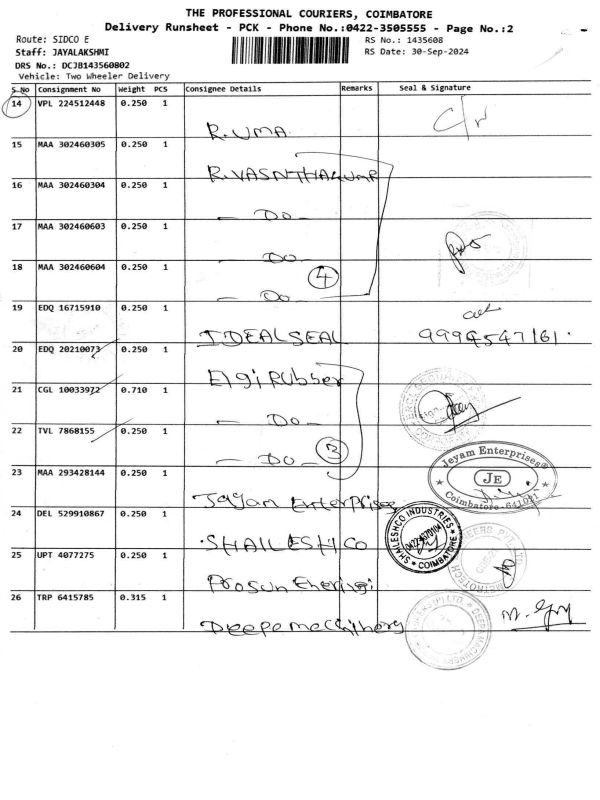 THE PROFESSIONAL COURIERS, COIMBATORE
Delivery Runsheet - PCK - Phone No.:0422-3505555 - Page No.:2
Route: SIDCO E
RS No.: 1435608
Staff: JAYALAKSHMI
RS Date: 30-Sep-2024
DRS No.: DCJB143560802
Vehicle: Two Wheeler Delivery
S.No Consignment No Weight PCS Consignee Details Remarks Seal & Signature
14 VPL 224512448 0.250 1
R.UMA
C/r
15 MAA 302460305 0.250 1
R.VASNTHAKUMR
16 MAA 302460304 0.250 1
— Do —
17 MAA 302460603 0.250 1
— Do —
18 MAA 302460604 0.250 1
4
— Do —
19 EDQ 16715910 0.250 1
IDEAL SEAL
9994547161.
20 EDQ 20210073 0.250 1
Elgi Rubber
21 CGL 10033972 0.710 1
— Do —
22 TVL 7868155 0.250 1
3
— Do —
Jeyam Enterprises
JE
Coimbatore - 641021
23 MAA 293428144 0.250 1
Jayam Enterprises
24 DEL 529910867 0.250 1
SHAILESHCO
SHAILESHCO INDUSTRIES
COIMBATORE
25 UPT 4077275 0.250 1
Prosun Eneringi
26 TRP 6415785 0.315 1
Deepa Macchinery